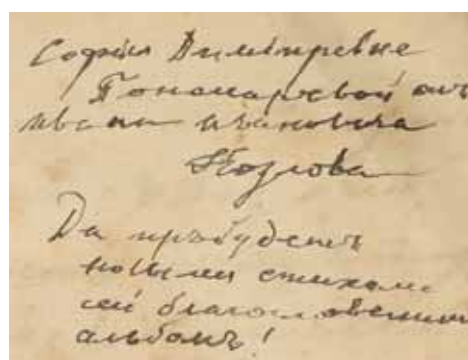 Софии Димитревне
Пономаревой отъ
Ивана Ивановича
Козлова
Да прѣбудетъ
новыми стихами
сей благословенный
альбомъ!